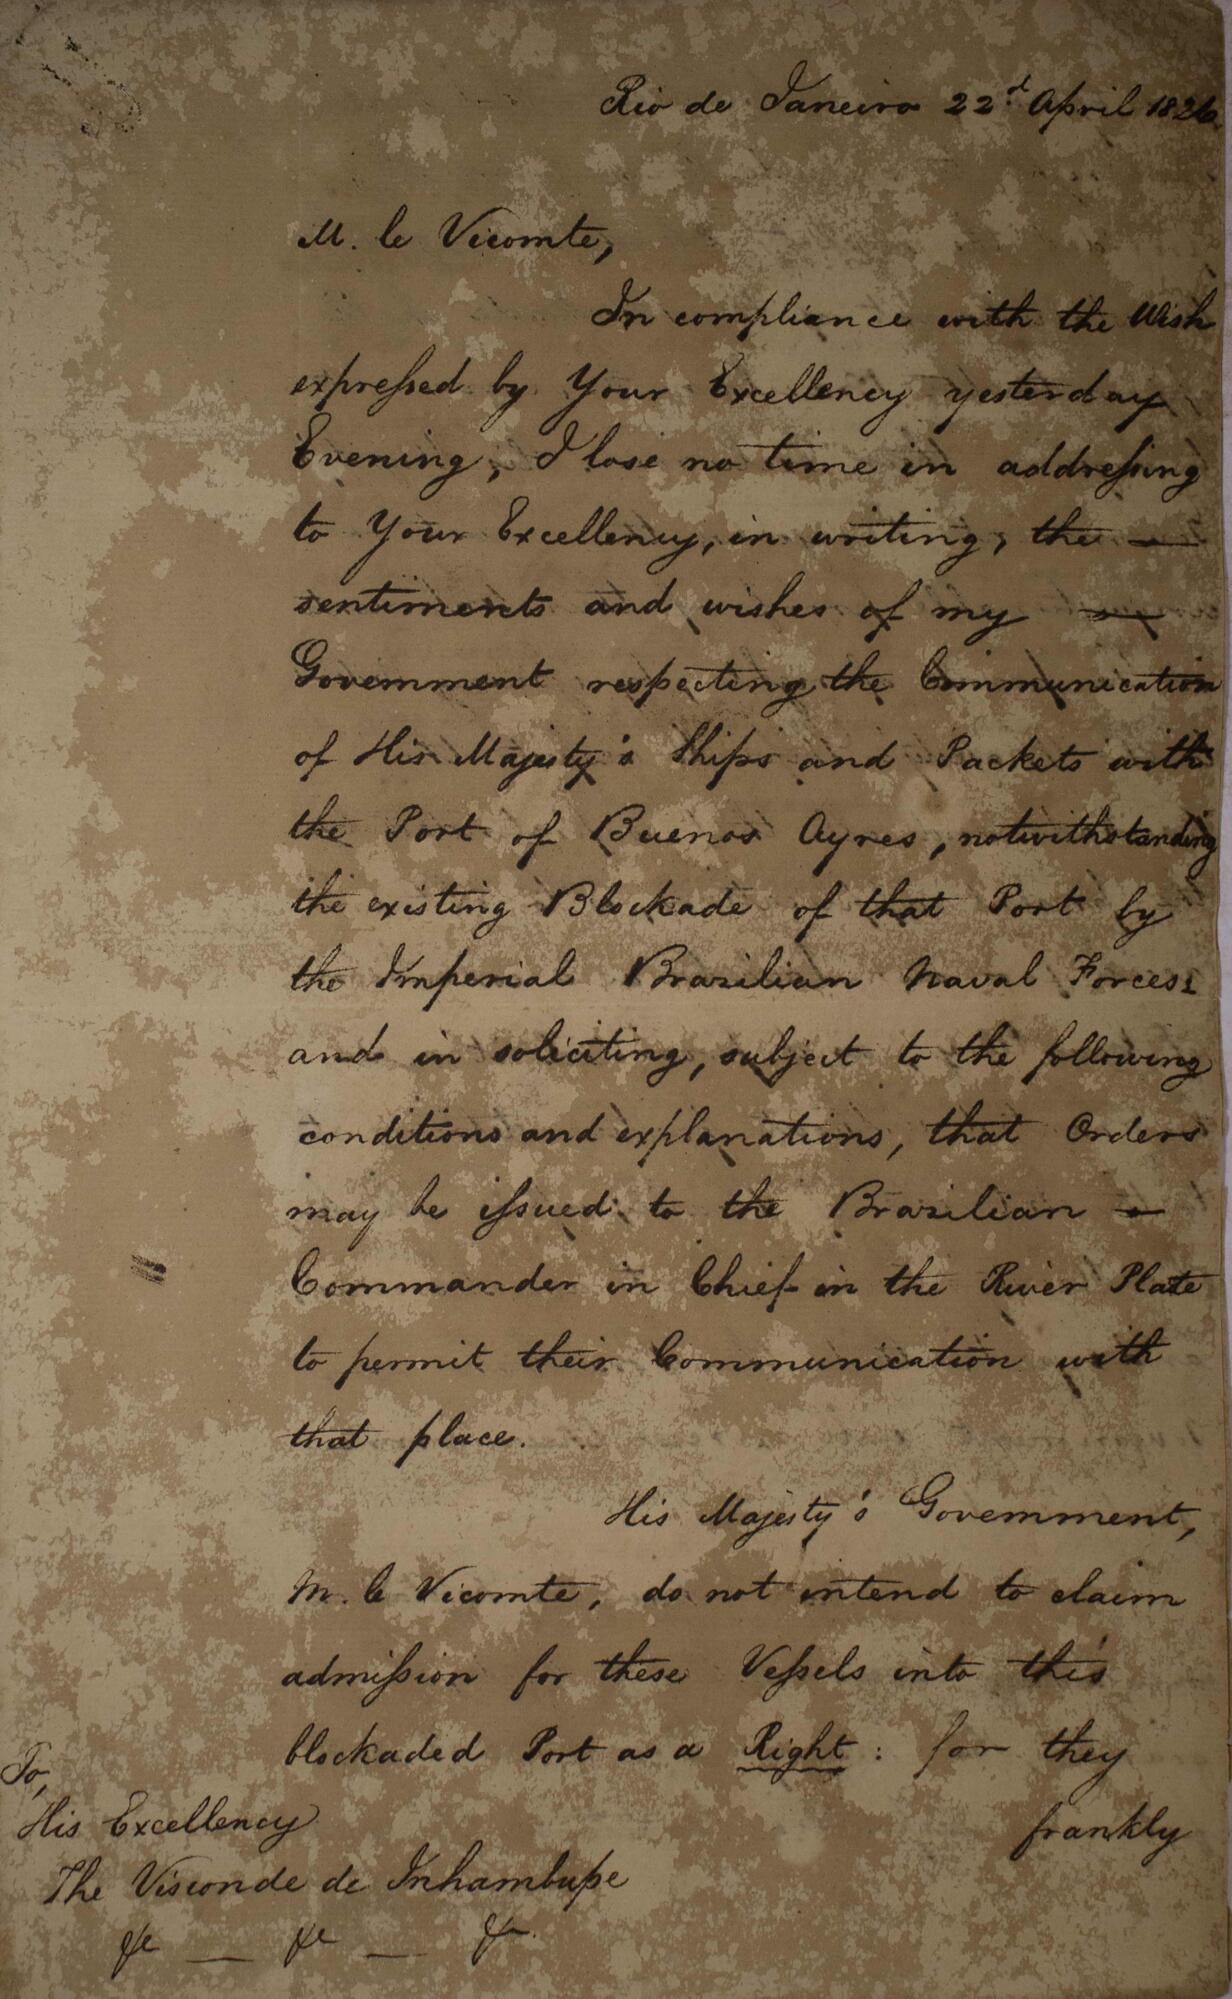 Rio de Janeiro 22d. April 1826
M. le Vicomte,
In compliance with the Wish
expreſsed by Your Excellency yesterday
Evening, I lose no time in addreſsing
to Your Excellency, in writing, the —
sentiments and wishes of my —
Government respecting the Communication
of His Majesty's Ships and Packets with
the Port of Buenos Ayres, notwithstanding
the existing Blockade of that Port by
the Imperial Brazilian Naval Forces:
and in soliciting, subject to the following
conditions and explanations, that Orders
may be iſsued to the Brazilian —
Commander in Chief in the River Plate
to permit their Communication with
that place.
His Majesty's Government,
M. le Vicomte, do not intend to claim
admiſsion for these Veſsels into this
blockaded Port as a Right: for they
frankly
To,
His Excellency
The Visconde de Inhambupe
&c — &c — &c.